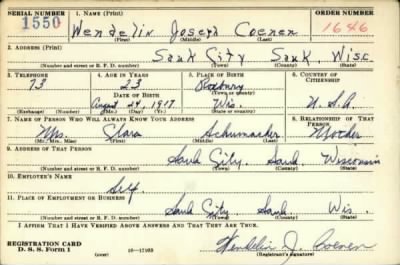 SERIAL NUMBER 1. NAME (Print) ORDER NUMBER
1550 Wendelin Joseph Coenen 1646
(First) (Middle) (Last)
2. ADDRESS (Print)
Sauk City Sauk, Wisc.
(Number and street or R. F. D. number) (Town) (County) (State)
3. TELEPHONE 4. AGE IN YEARS 5. PLACE OF BIRTH 6. COUNTRY OF CITIZENSHIP
73 23 Roxbury
DATE OF BIRTH (Town or county)
August 24, 1917 Wis. U.S.A.
(Exchange) (Number) (Mo.) (Day) (Yr.) (State or country)
7. NAME OF PERSON WHO WILL ALWAYS KNOW YOUR ADDRESS 8. RELATIONSHIP OF THAT PERSON
Mrs. Clara Schumacher Mother
(Mr., Mrs., Miss) (First) (Middle) (Last)
9. ADDRESS OF THAT PERSON
Sauk City, Sauk, Wisconsin
(Number and street or R. F. D. number) (Town) (County) (State)
10. EMPLOYER'S NAME
Self.
11. PLACE OF EMPLOYMENT OR BUSINESS
Sauk City Sauk Wis.
(Number and street or R. F. D. number) (Town) (County) (State)
I AFFIRM THAT I HAVE VERIFIED ABOVE ANSWERS AND THAT THEY ARE TRUE.
REGISTRATION CARD
D. S. S. Form 1 Wendelin J. Coenen
(Registrant's signature)